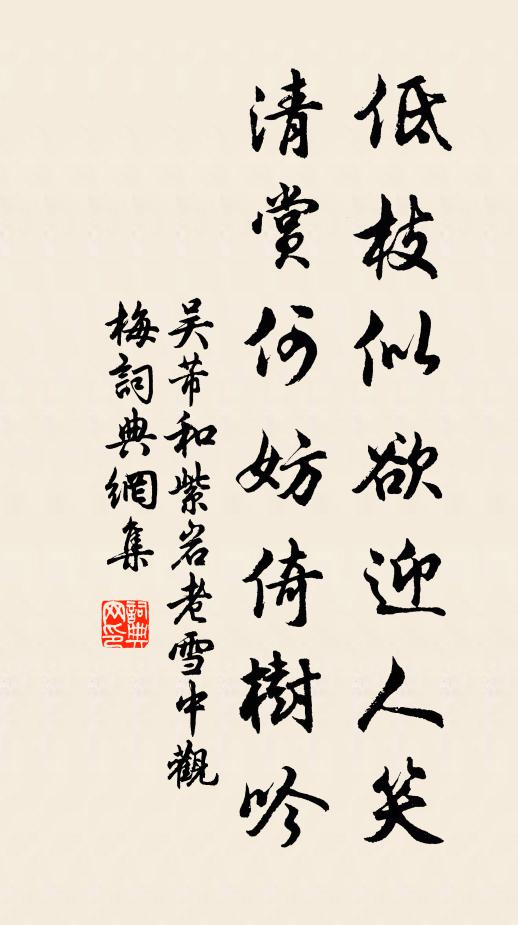 低枝似欲迎人笑
清賞何妨倚樹吟
吴芾和紫岩老雪中觀
梅詞典網集
詞典
网印